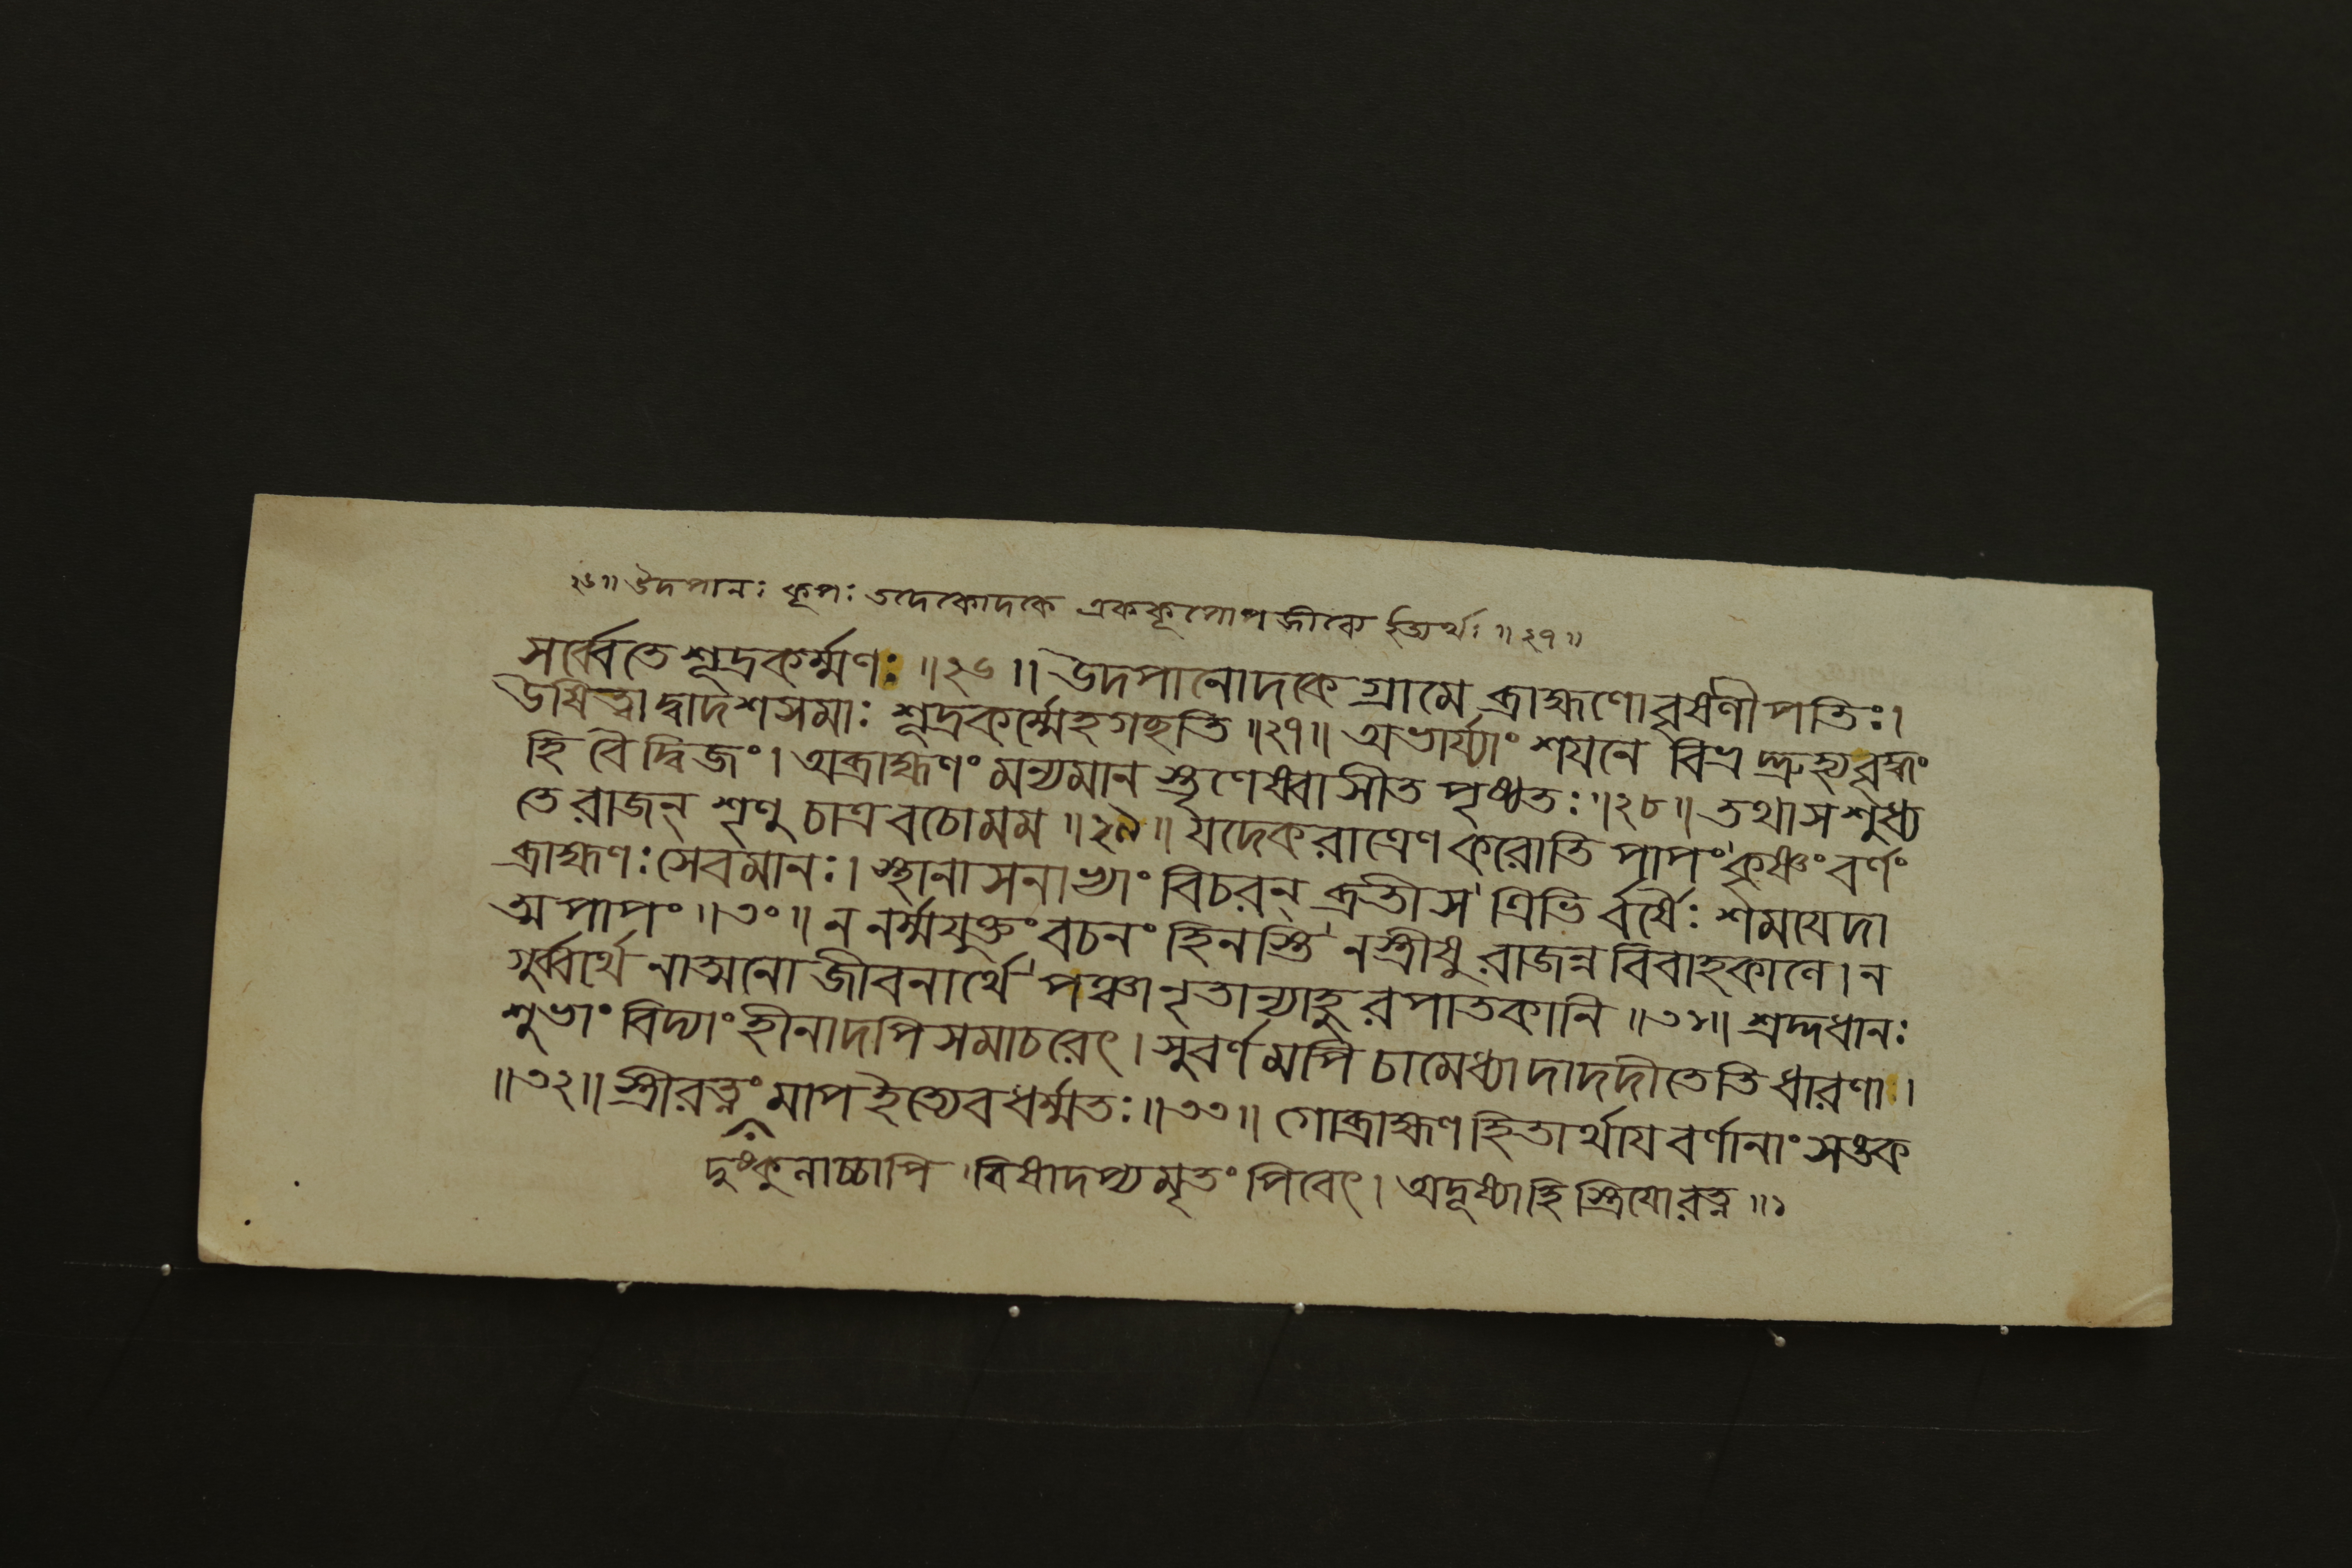 ২৬॥ উদপানঃ কূপঃ তদেকোদকে এককূপোপজীবে ইত্যর্থঃ ॥২৭॥
সর্ব্বেতে শূদ্রকর্ম্মণঃ ॥২৬॥ উদপানোদকে গ্রামে ব্রাহ্মণো বৃষলীপতিঃ।
উষিত্বা দ্বাদশসমাঃ শূদ্রকর্ম্মেহগছতি ॥২৭॥ অভার্য্যাং শযনে বিভ্র
হি বৈ দ্বিজং। অব্রাহ্মণং মন্যমান স্তৃণেষ্বাসীত পৃষ্ঠতঃ ॥২৮॥ তথা স শুধ্য
তে রাজন্ শৃণু চাত্র বচো মম ॥২৯॥ যদেকরাত্রেণ করোতি পাপং কৃষ্ণং বর্ণং
ব্রাহ্মণঃ সেবমানঃ। স্থানাসনাভ্যাং বিচরন্ ব্রতী স ত্রিভি র্বর্ষৈঃ শমযেদা
ত্মপাপং ॥৩০॥ ন নর্ম্মযুক্তং বচনং হিনস্তি ন স্ত্রীষু রাজন্ন বিবাহকালে। ন
গুর্ব্বার্থে নাত্মনো জীবনার্থে পঞ্চানৃতান্যাহুরপাতকানি ॥৩১॥ শ্রদ্দধানঃ
শুভাং বিদ্যাং হীনাদপি সমাচরেৎ। সুবর্ণমপি চামেধ্যাদাদদীতেতি ধারণা।
॥৩২॥ স্ত্রীরত্নং মাপ ইত্যেব ধর্ম্মতঃ ॥৩৩॥ গোব্রাহ্মণহিতার্থায বর্ণানাং সঙ্ক
দুষ্কুলাচ্চাপি বিষাদপ্যমৃতং পিবেৎ। অদূষ্যাহি স্ত্রিযো রত্ন ॥১